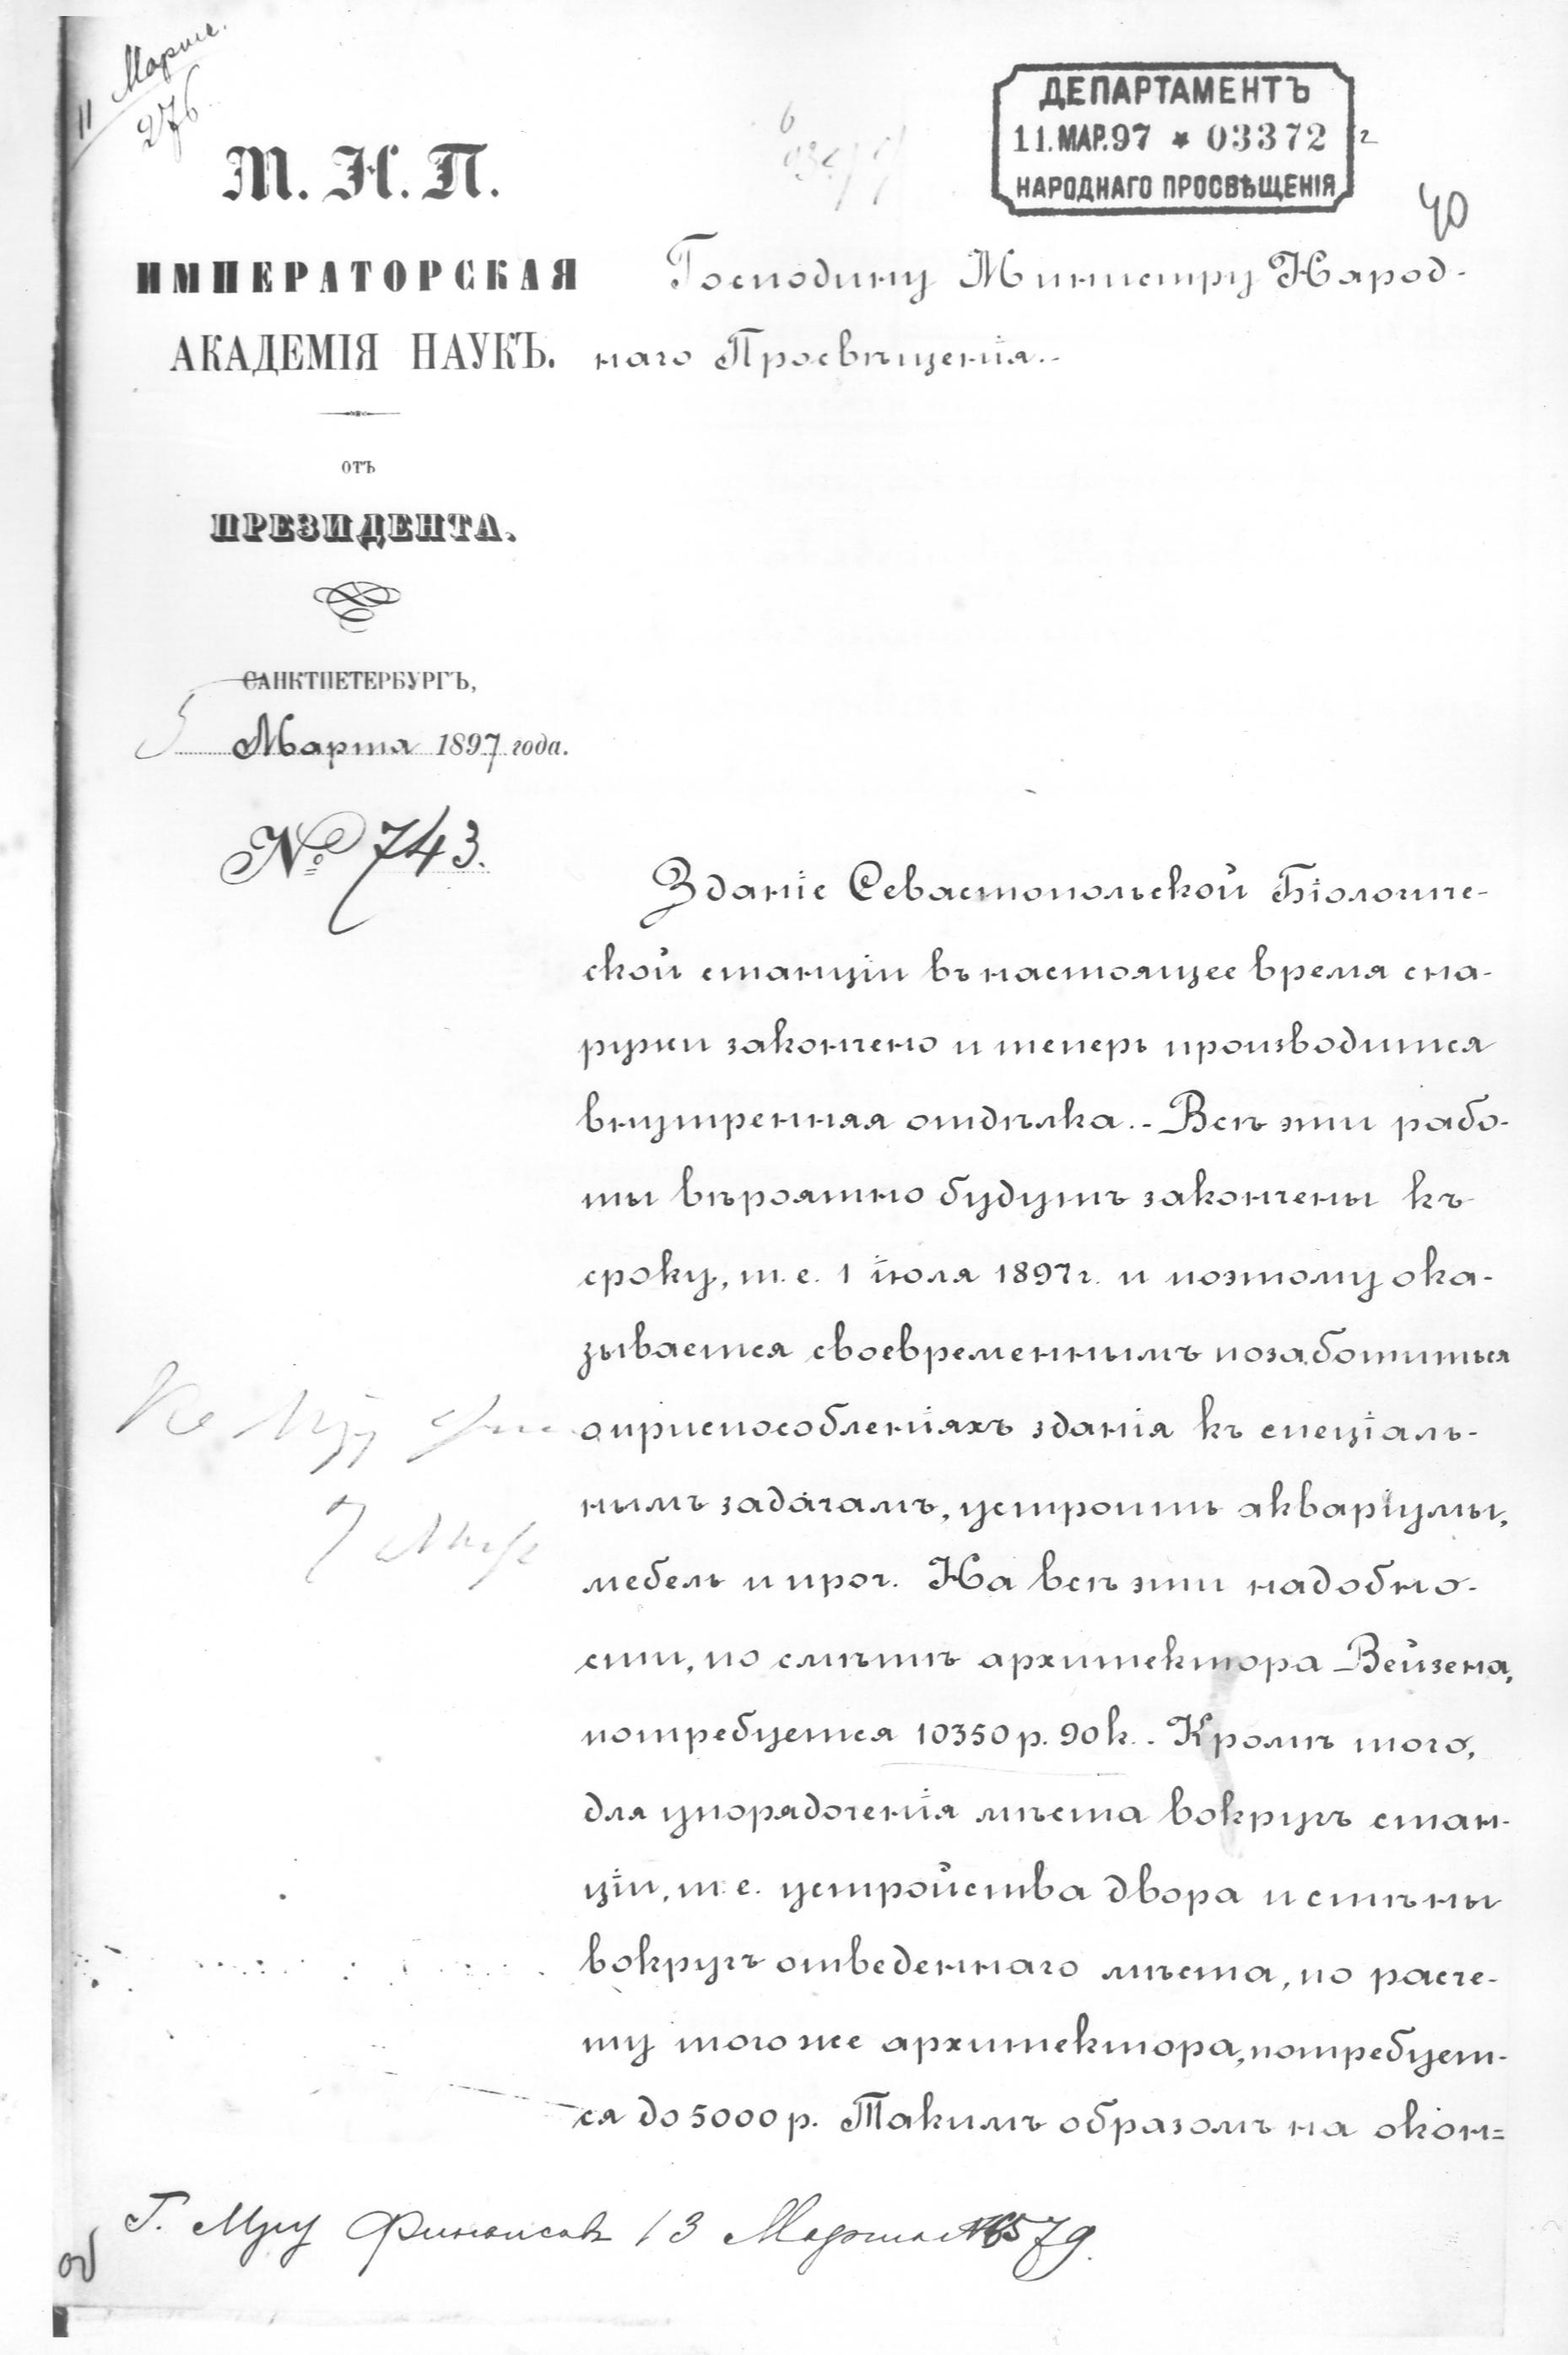 11 Марта.
276
М. Н. П.
ИМПЕРАТОРСКАЯ
АКАДЕМІЯ НАУКЪ.
отъ
ПРЕЗИДЕНТА.
САНКТПЕТЕРБУРГЪ,
5 Марта 1897 года.
№ 743.
ДЕПАРТАМЕНТЪ
11.МАР.97 * 03372
НАРОДНАГО ПРОСВѢЩЕНІЯ
40
Господину Министру Народ-
наго Просвѣщенія.-
Зданіе Севастопольской Біологиче-
ской станціи въ настоящее время сна-
ружи закончено и теперь производится
внутренняя отдѣлка.- Всѣ эти рабо-
ты вѣроятно будутъ закончены къ
сроку, т.е. 1 іюля 1897 г. и поэтому ока-
зывается своевременнымъ позаботиться
о приспособленіяхъ зданія къ спеціаль-
нымъ задачамъ, устроить акваріумы,
мебель и проч. На всѣ эти надобно-
сти, по смѣтѣ архитектора Вейзена,
потребуется 10350 р. 90 к.. Кромѣ того,
для упорядоченія мѣста вокругъ стан-
ціи, т.е. устройства двора и стѣны
вокругъ отведеннаго мѣста, по расче-
ту того же архитектора, потребует-
ся до 5000 р. Такимъ образомъ на окон=
Г. Мру Финансов 13 Марта № 6579.